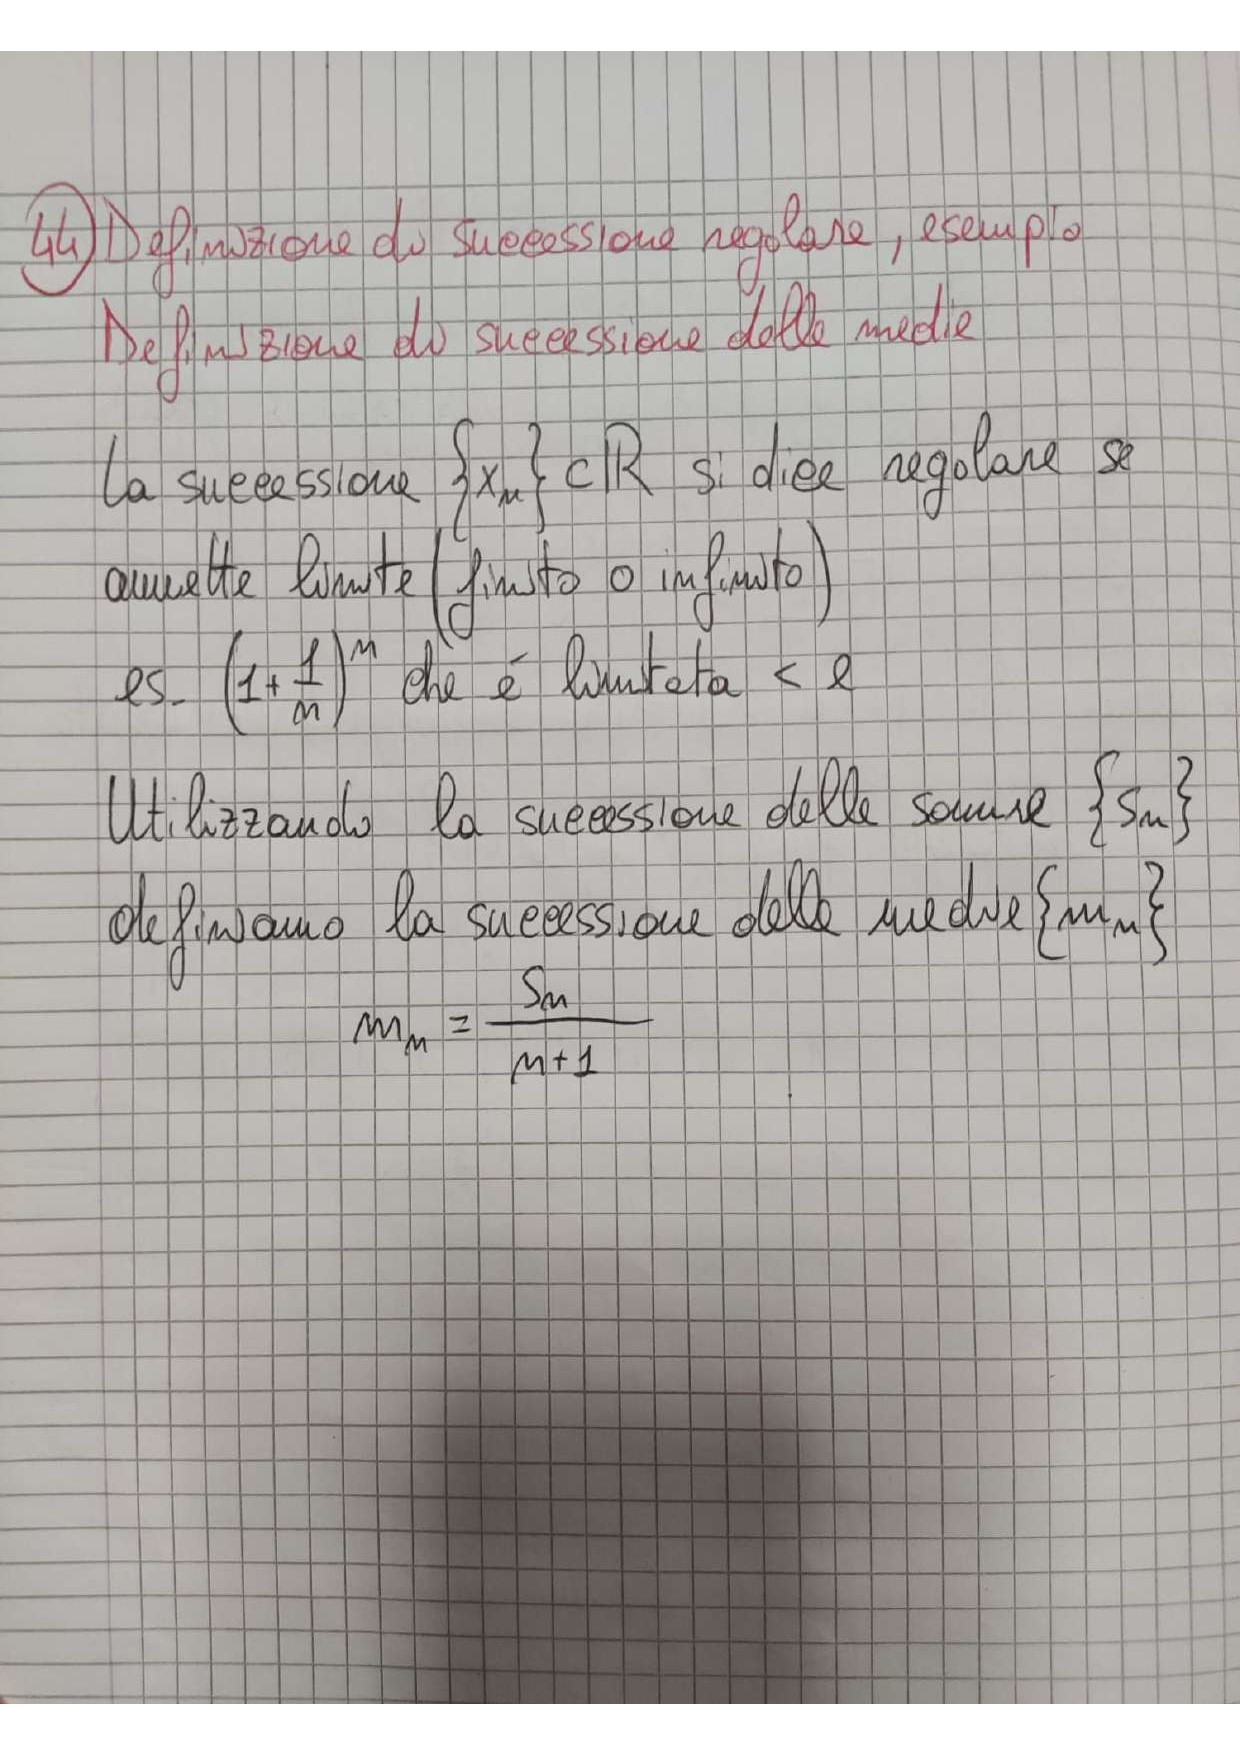 44) Definizione di successione regolare, esempio
Definizione di successione delle medie
La successione {xₙ} ⊂ ℝ si dice regolare se
ammette limite (finito o infinito)
es. (1+1/n)ⁿ che é limitata < e
Utilizzando la successione delle somme {Sₙ}
definiamo la successione delle medie {mₙ}
mₙ = Sₙ/(n+1)